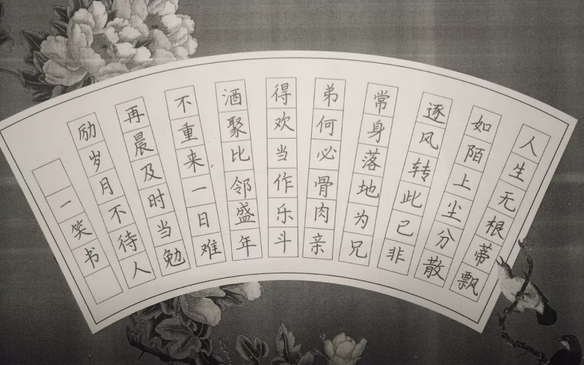 人生无根蒂飘
如陌上尘分散
逐风转此已非
常身落地为兄
弟何必骨肉亲
得欢当作乐斗
酒聚比邻盛年
不重来一日难
再晨及时当勉
励岁月不待人
一笑书